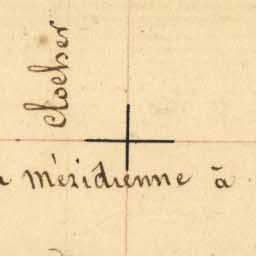 clocher
méridienne à